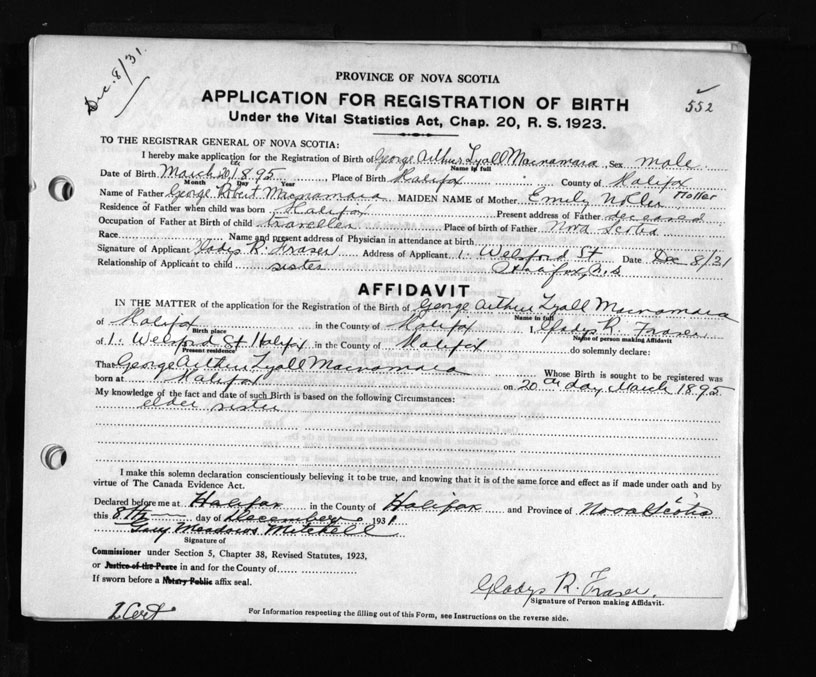 Dec. 8/31.
PROVINCE OF NOVA SCOTIA
APPLICATION FOR REGISTRATION OF BIRTH
552
Under the Vital Statistics Act, Chap. 20, R. S. 1923.
TO THE REGISTRAR GENERAL OF NOVA SCOTIA:
I hereby make application for the Registration of Birth of George Arthur Lyall Macnamara Sex male
Name in full
Date of Birth March 20th 1895 Place of Birth Halifax County of Halifax
Month Day Year
Name of Father George Robert Macnamara MAIDEN NAME of Mother Emily Holler
Residence of Father when child was born Halifax Present address of Father deceased
Occupation of Father at Birth of child traveller Place of birth of Father Nova Scotia
Race Name and present address of Physician in attendance at birth
Signature of Applicant Gladys R. Fraser Address of Applicant 1. Welsford St Date Dec 8/31
Relationship of Applicant to child sister Halifax, N.S.
AFFIDAVIT
IN THE MATTER of the application for the Registration of the Birth of George Arthur Lyall Macnamara
Name in full
of Halifax in the County of Halifax I, Gladys R. Fraser
Birth place Name of person making Affidavit
of 1. Welsford St Halifax in the County of Halifax do solemnly declare:
Present residence
That George Arthur Lyall Macnamara Whose Birth is sought to be registered was
born at Halifax on 20th day March 1895
My knowledge of the fact and date of such Birth is based on the following Circumstances:
elder sister
I make this solemn declaration conscientiously believing it to be true, and knowing that it is of the same force and effect as if made under oath and by
virtue of The Canada Evidence Act.
Declared before me at Halifax in the County of Halifax and Province of Nova Scotia
this 8th day of December 1931
Meadows Mitchell
Signature of
Commissioner under Section 5, Chapter 38, Revised Statutes, 1923,
or Justice of the Peace in and for the County of
If sworn before a Notary Public affix seal.
Gladys R. Fraser.
Signature of Person making Affidavit.
1 Cert
For Information respecting the filling out of this Form, see Instructions on the reverse side.